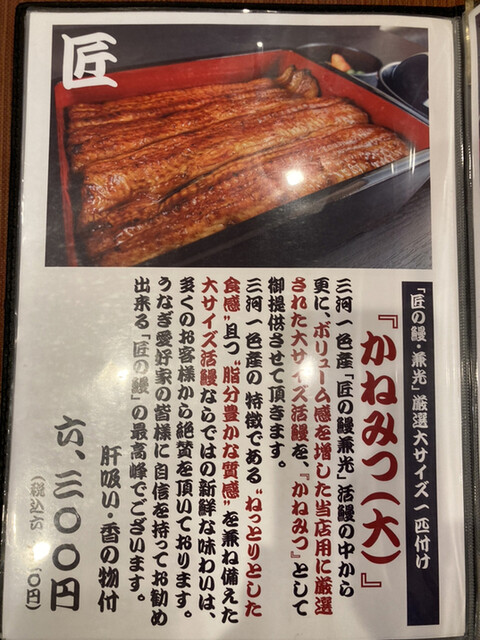 匠
「匠の鰻・兼光」厳選大サイズ一匹付け
『かねみつ(大)』
三河一色産「匠の鰻兼光」活鰻の中から
更に、ボリューム感を増した当店用に厳選
された大サイズ活鰻を、『かねみつ』として
御提供させて頂きます。
三河一色産の特徴である"ねっとりとした
食感"且つ"脂分豊かな質感"を兼ね備えた
大サイズ活鰻ならではの新鮮な味わいは、
多くのお客様から絶賛を頂いております。
うなぎ愛好家の皆様に自信を持ってお勧め
出来る「匠の鰻」の最高峰でございます。
肝吸い・香の物付
六、三〇〇円